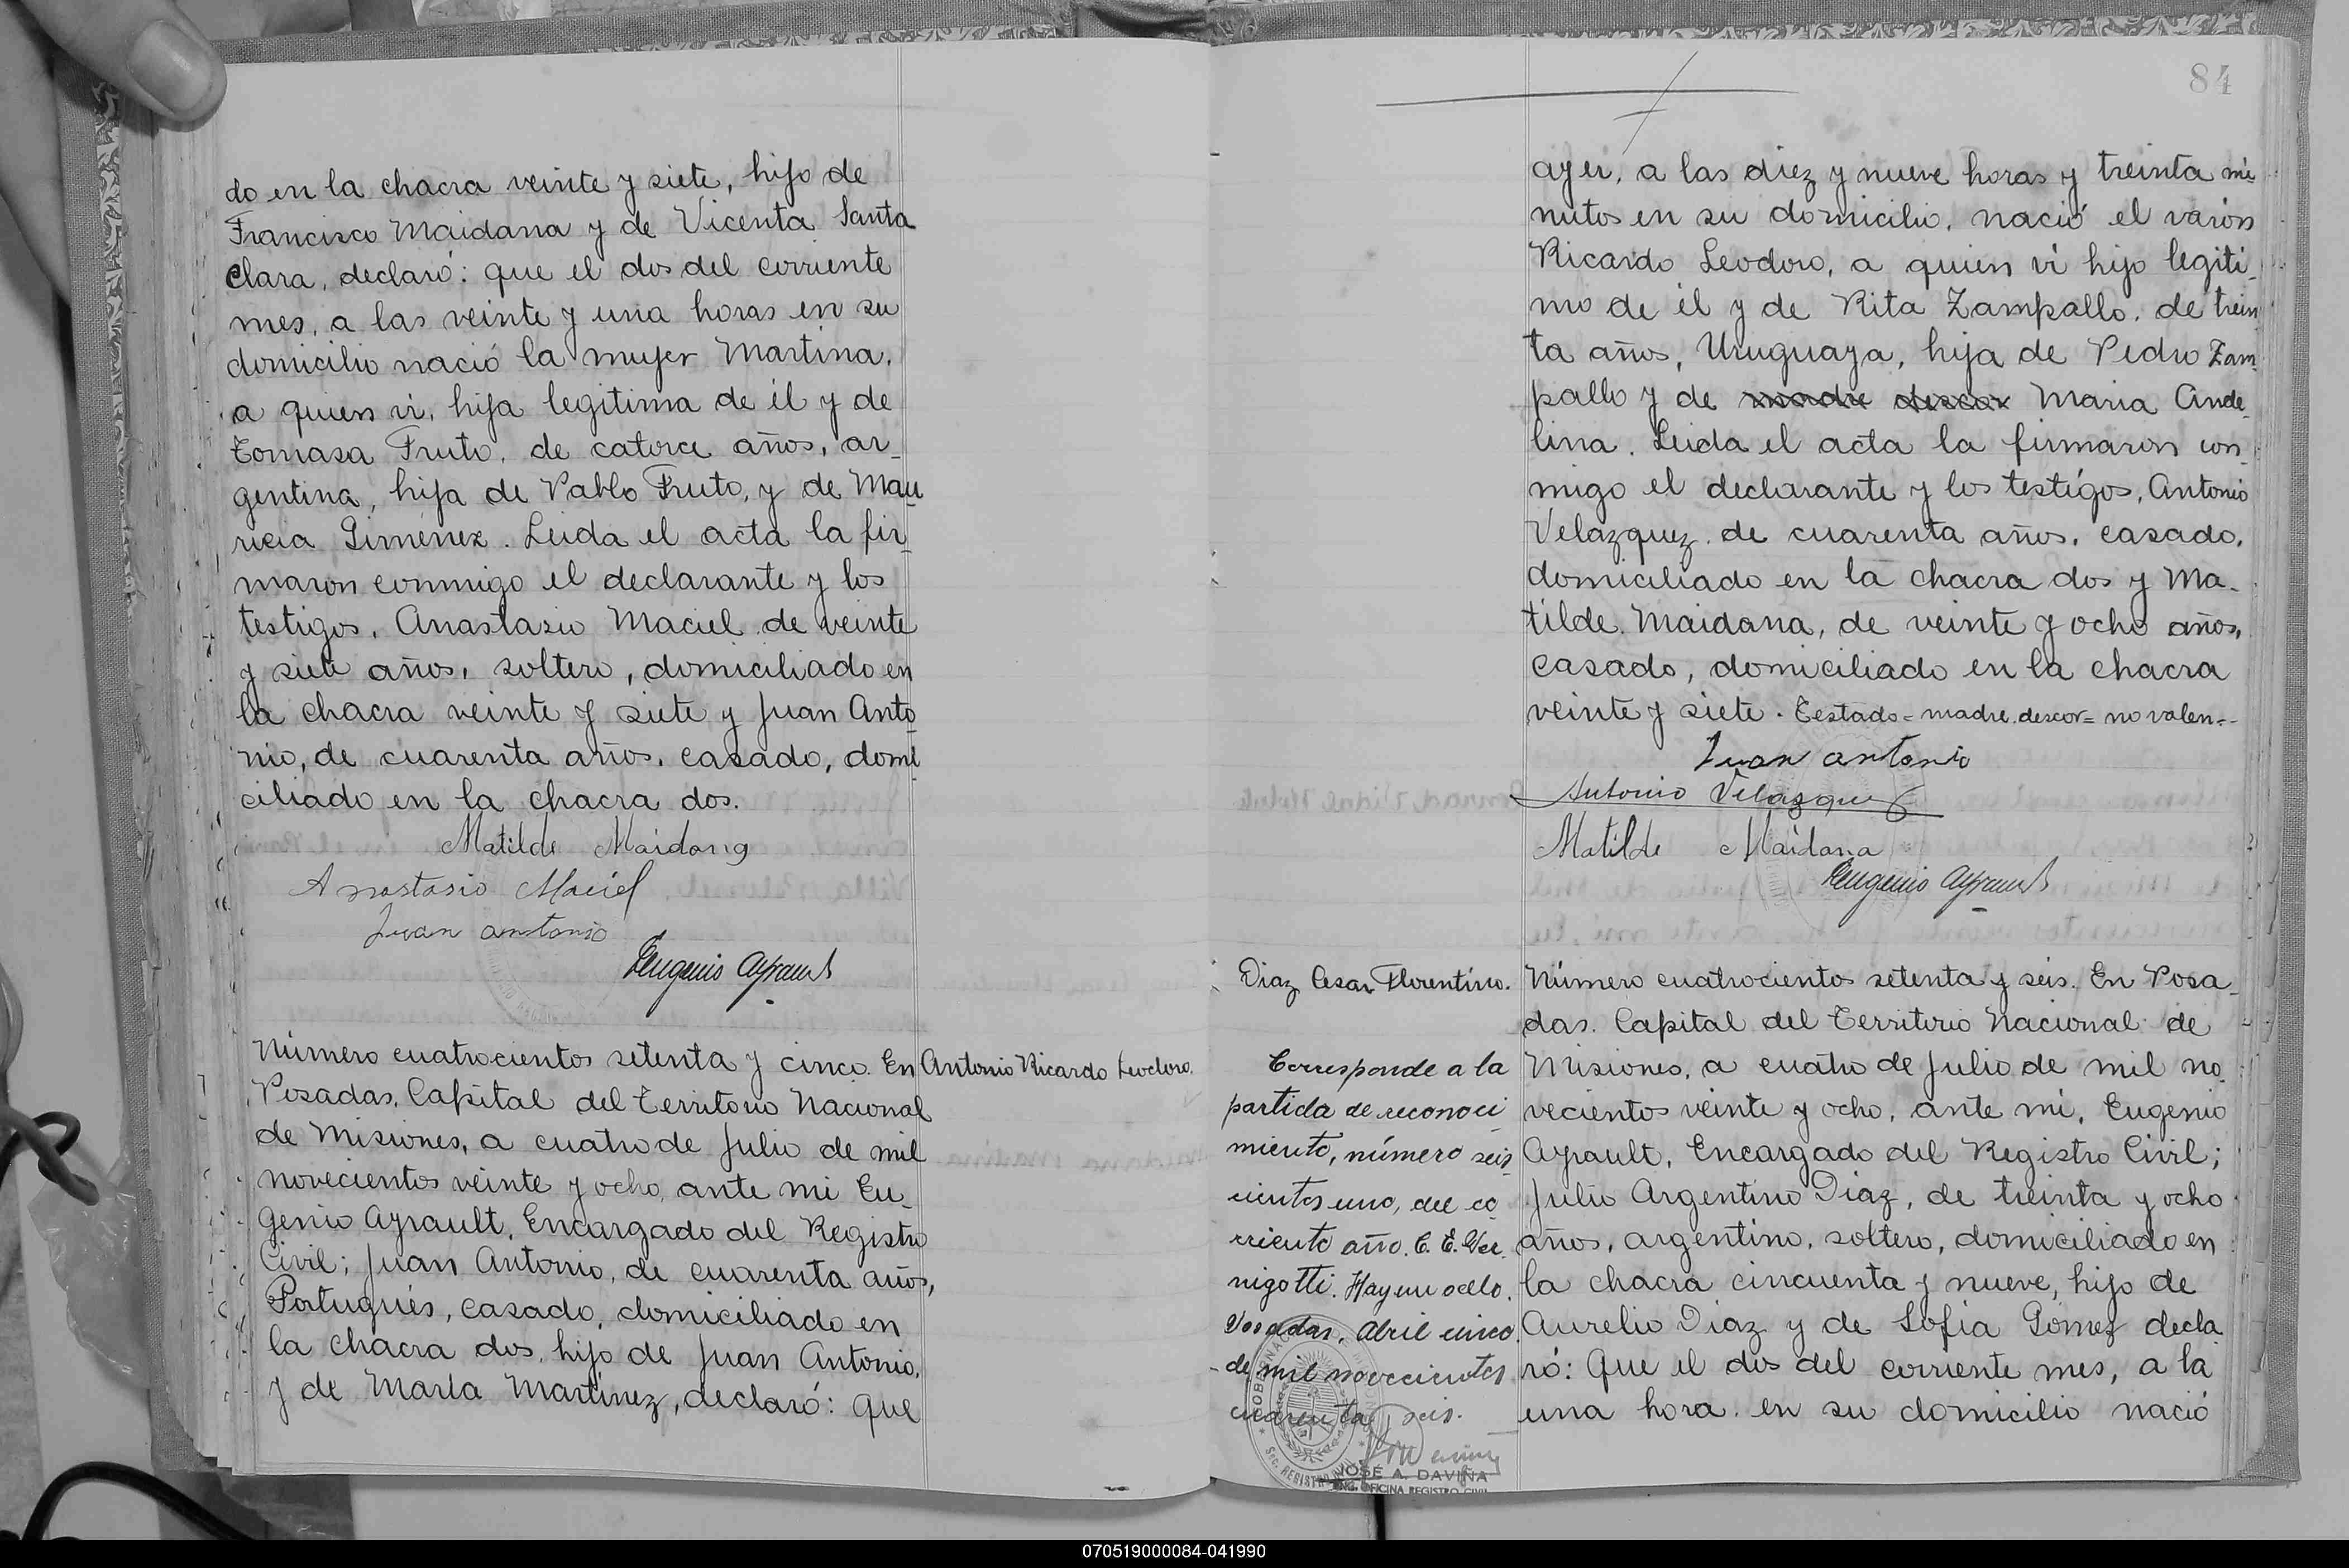 do en la chacra veinte y siete, hijo de
Francisco Maidana y de Vicenta Santa
Clara, declaró: que el dos del corriente
mes, a las veinte y una horas en su
domicilio nació la mujer Martina,
a quien vi, hija legitima de él y de
Tomasa Fruto, de catorce años, ar_
gentina, hija de Pablo Fruto, y de Mau_
ricia Gimenez. Leida el acta la fir_
maron conmigo el declarante y los
testigos, Anastasio Maciel de veinte
y siete años, soltero, domiciliado en
la chacra veinte y siete y Juan Anto
nio, de cuarenta años, casado, domi
ciliado en la chacra dos.
Matilde Maidana
Anastasio Maciel
Juan antonio
Eugenio Ayrault
Número cuatrocientos setenta y cinco. En
Antonio Ricardo Leodoro.
Posadas, Capital del Territorio Nacional
de Misiones, a cuatro de Julio de mil
novecientos veinte y ocho, ante mi Eu_
genio Ayrault, Encargado del Registro
Civil; Juan Antonio, de cuarenta años,
Portugués, casado, domiciliado en
la chacra dos, hijo de Juan Antonio,
y de María Martínez, declaró: Que
84
ayer, a las diez y nueve horas y treinta mi
nutos en su domicilio, nació el varón
Ricardo Leodoro, a quien vi hijo legiti_
mo de él y de Rita Zampallo, de trein
ta años, Uruguaya, hija de Pedro Zam
pallo y de madre descor Maria Ande_
lina. Leida el acta la firmaron con_
migo el declarante y los testigos, Antonio
Velazquez, de cuarenta años, casado,
domiciliado en la chacra dos y Ma_
tilde Maidana, de veinte y ocho años,
casado, domiciliado en la chacra
veinte y siete. Testado = madre descor = no valen=
Juan antonio
Antonio Velazquez
Matilde Maidana
Eugenio Ayrault
Diaz Cesar Florentino.
Corresponde a la
partida de reconoci
miento, número seis
cientos uno, del co
rriente año. C. E. Ver
nigotti. Hay un sello.
Posadas, Abril cinco
de mil novecientos
cuarenta y seis.
JOSÉ A. DAVIÑA
ENC. OFICINA REGISTRO CIVIL
Número cuatrocientos setenta y seis. En Posa_
das. Capital del Territorio Nacional de
Misiones, a cuatro de Julio de mil no_
vecientos veinte y ocho, ante mi, Eugenio
Ayrault, Encargado del Registro Civil;
Julio Argentino Diaz, de treinta y ocho
años, argentino, soltero, domiciliado en
la chacra cincuenta y nueve, hijo de
Aurelio Diaz y de Sofia Gómez decla
ró: Que el dos del corriente mes, a la
una hora en su domicilio nació
070519000084-041990